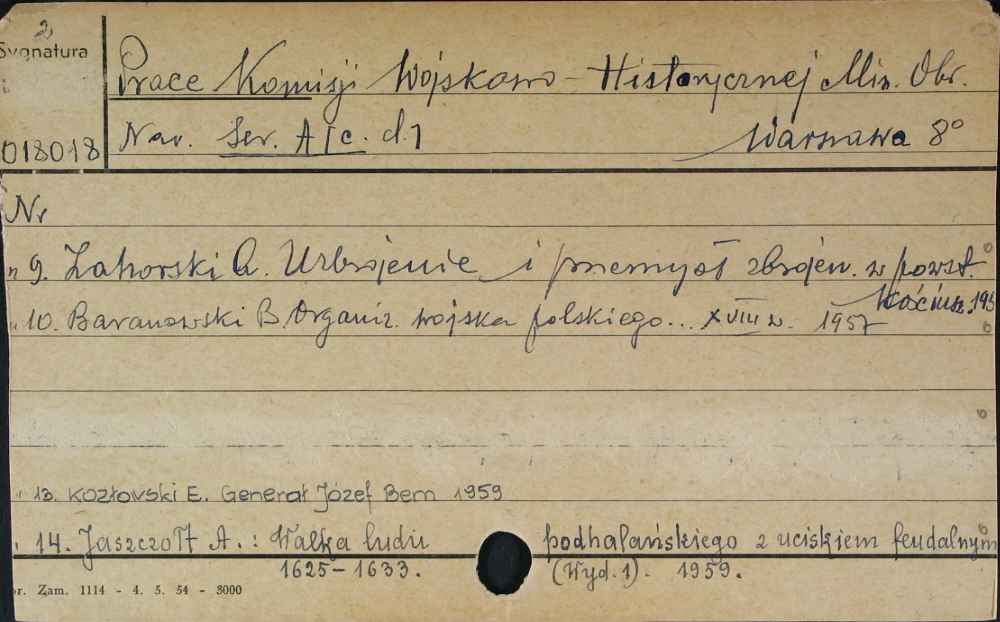 2
Sygnatura
018018
Prace Komisji Wojskowo-Historycznej Min. Obr.
Nar. Ser. A [c. d.]
Warszawa 8°
Nr
" 9. Zahorski A. Uzbrojenie i przemysł zbrojen. w powst.
Kościusz. 195
" 10. Baranowski B. Organiz. wojska polskiego... XVIII w. 1957
" 13. Kozłovski E. Generał Józef Bem 1959
" 14. Jaszczołt A.: Walka ludu podhalańskiego z uciskiem feudalnym
1625-1633. (Wyd. 1). 1959.
r. Zam. 1114 - 4. 5. 54 - 3000